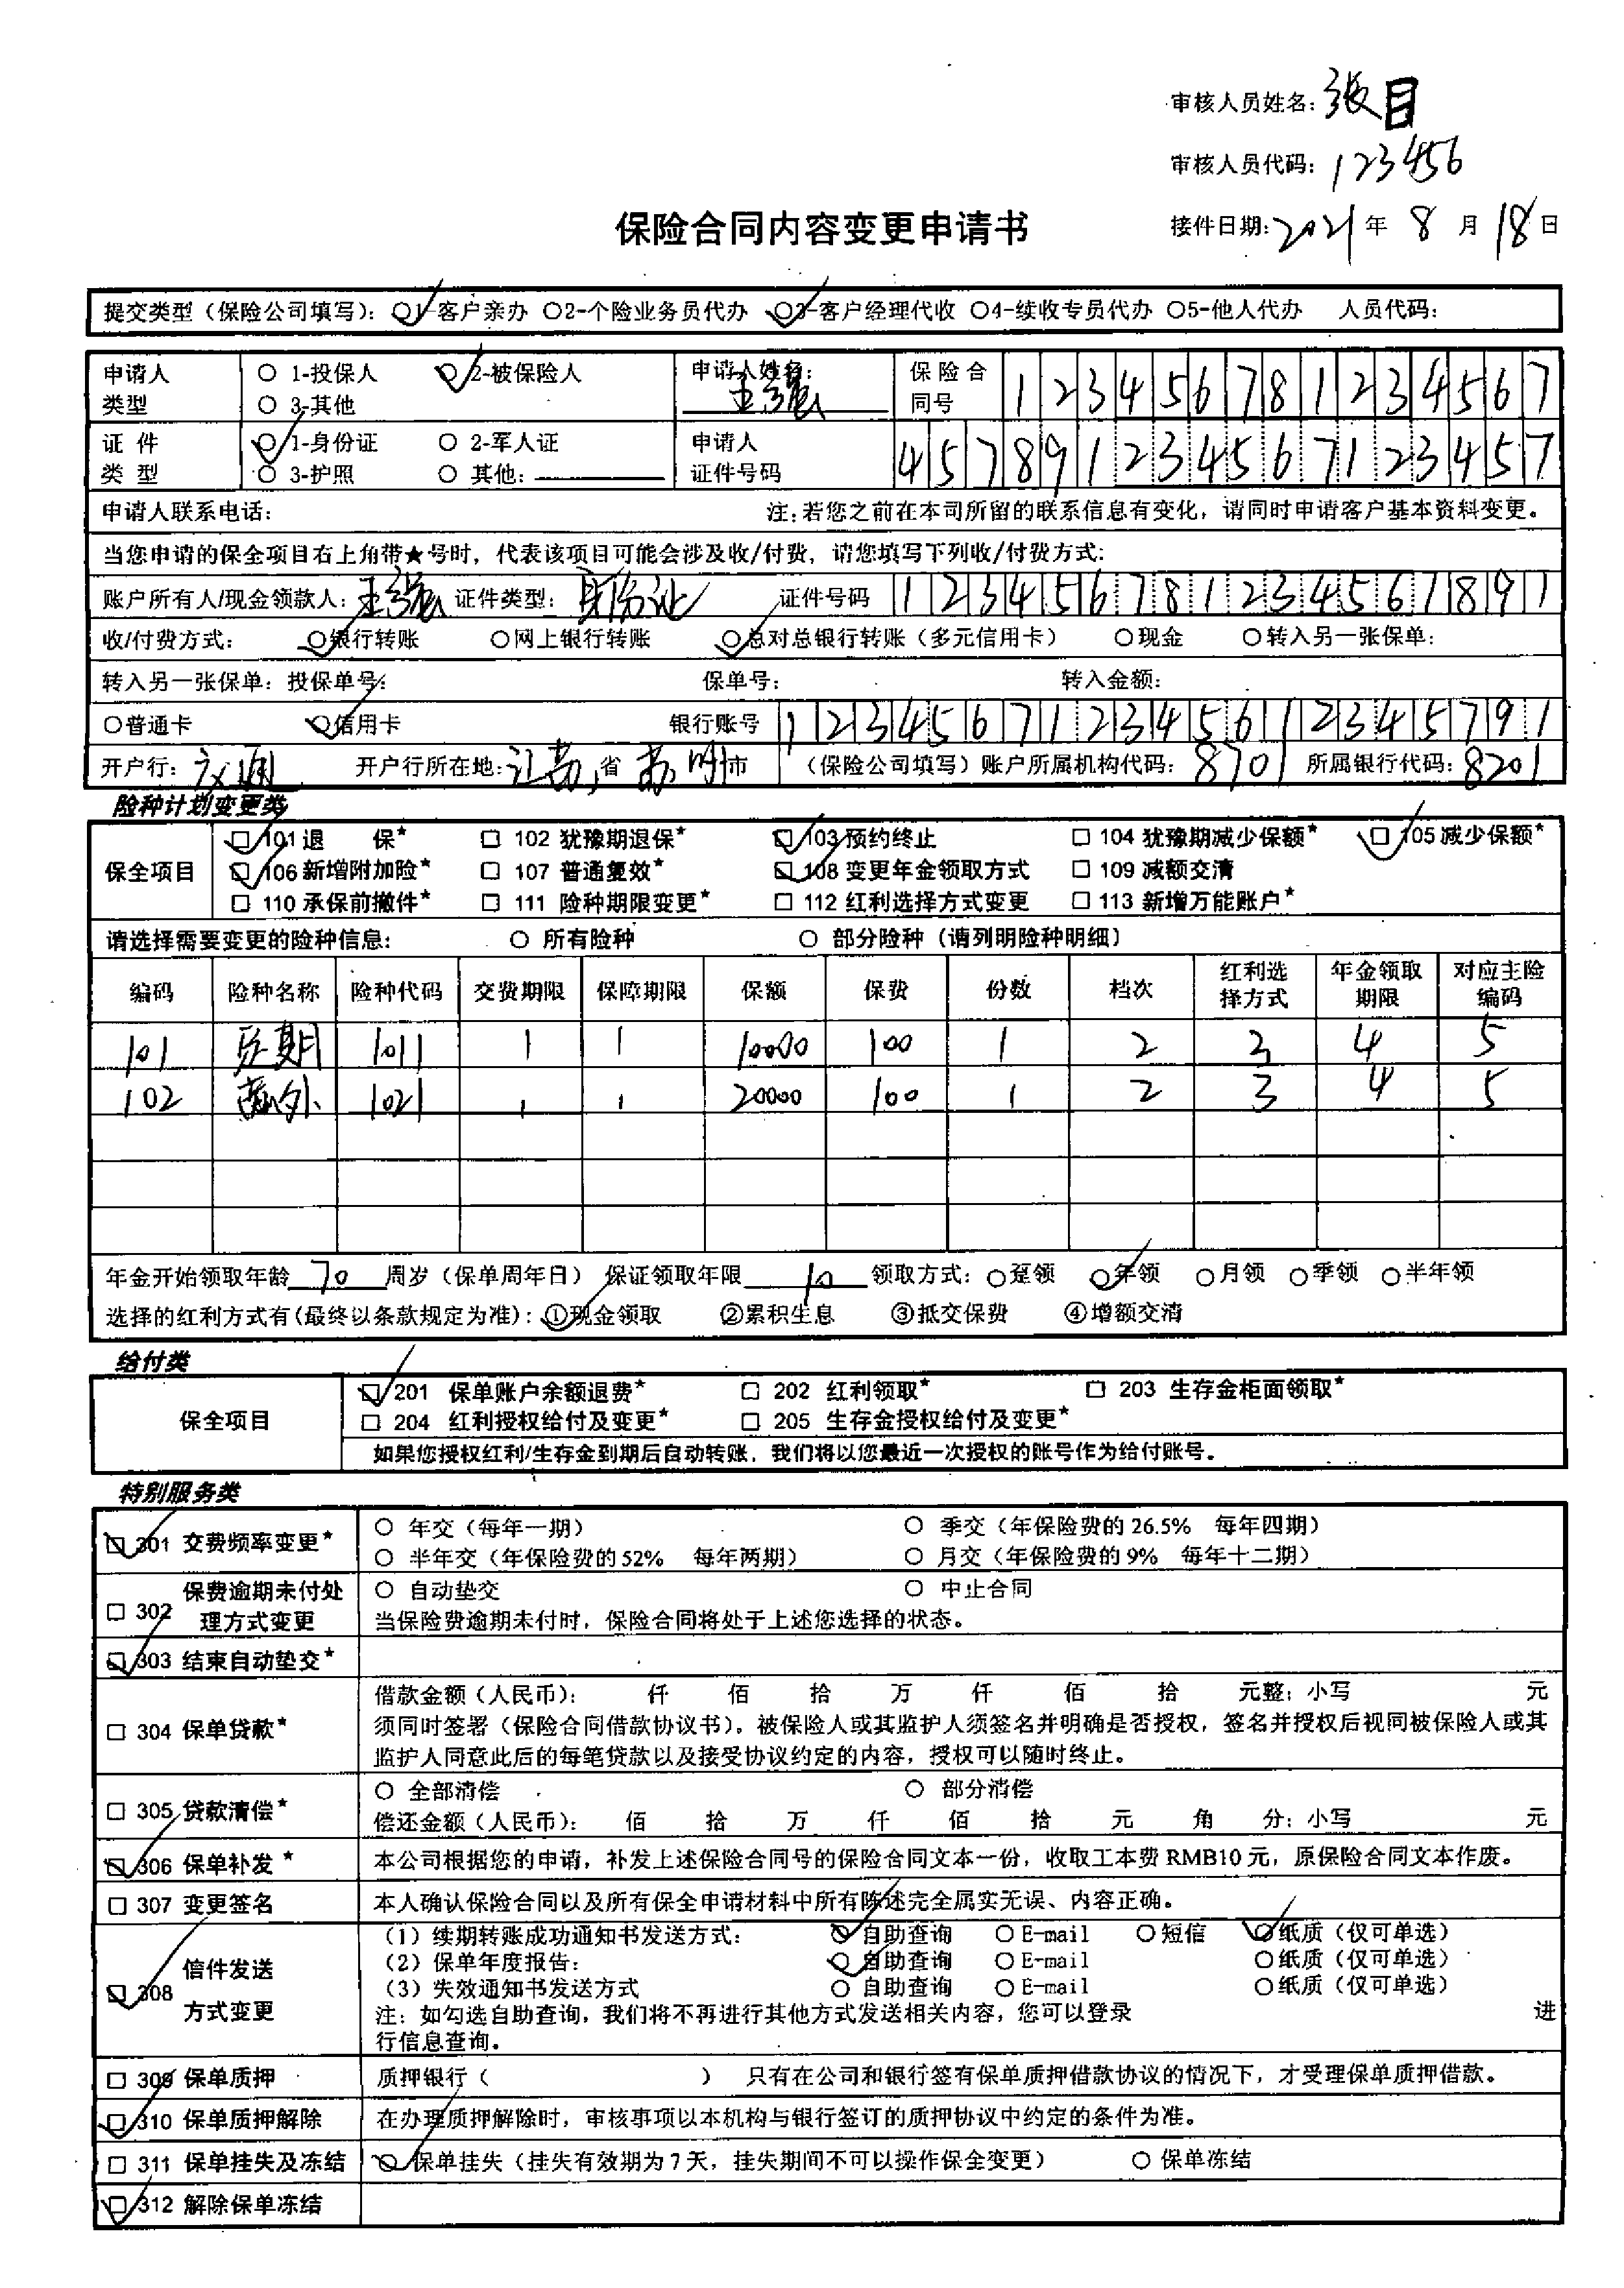 审核人员姓名：张目
审核人员代码：123456
保险合同内容变更申请书
接件日期：2021年 8月18日
提交类型（保险公司填写）：○1-客户亲办 ○2-个险业务员代办 ○3-客户经理代收 ○4-续收专员代办 ○5-他人代办 人员代码：
申请人类型 ○ 1-投保人 ○ 2-被保险人 ○ 3-其他 申请人姓名：王强 保险合同号 123456781234567
证件类型 ○ 1-身份证 ○ 2-军人证 ○ 3-护照 ○ 其他： 申请人证件号码 457891234567123457
申请人联系电话： 注：若您之前在本司所留的联系信息有变化，请同时申请客户基本资料变更。
当您申请的保全项目右上角带★号时，代表该项目可能会涉及收/付费，请您填写下列收/付费方式：
账户所有人/现金领款人：王强 证件类型：身份证 证件号码 123456781234567891
收/付费方式： ○银行转账 ○网上银行转账 ○总对总银行转账（多元信用卡） ○现金 ○转入另一张保单：
转入另一张保单：投保单号： 保单号： 转入金额：
○普通卡 ○信用卡 银行账号 123456712345612345791
开户行：交通 开户行所在地：江苏，省 苏州市 （保险公司填写）账户所属机构代码：8701 所属银行代码：8201
险种计划变更类
保全项目
□ 101 退 保★ □ 102 犹豫期退保★ □ 103 预约终止 □ 104 犹豫期减少保额★ □ 105 减少保额★
□ 106 新增附加险★ □ 107 普通复效★ □ 108 变更年金领取方式 □ 109 减额交清
□ 110 承保前撤件★ □ 111 险种期限变更★ □ 112 红利选择方式变更 □ 113 新增万能账户★
请选择需要变更的险种信息： ○ 所有险种 ○ 部分险种（请列明险种明细）
编码 险种名称 险种代码 交费期限 保障期限 保额 保费 份数 档次 红利选择方式 年金领取期限 对应主险编码
101 定期 1011 1 1 10000 100 1 2 3 4 5
102 意外 1021 1 1 20000 100 1 2 3 4 5
年金开始领取年龄 70 周岁（保单周年日） 保证领取年限 10 领取方式：○趸领 ○年领 ○月领 ○季领 ○半年领
选择的红利方式有(最终以条款规定为准)：①现金领取 ②累积生息 ③抵交保费 ④增额交清
给付类
保全项目
□ 201 保单账户余额退费★ □ 202 红利领取★ □ 203 生存金柜面领取★
□ 204 红利授权给付及变更★ □ 205 生存金授权给付及变更★
如果您授权红利/生存金到期后自动转账，我们将以您最近一次授权的账号作为给付账号。
特别服务类
□ 301 交费频率变更★
○ 年交（每年一期） ○ 季交（年保险费的 26.5% 每年四期）
○ 半年交（年保险费的 52% 每年两期） ○ 月交（年保险费的 9% 每年十二期）
□ 302 保费逾期未付处理方式变更
○ 自动垫交 ○ 中止合同
当保险费逾期未付时，保险合同将处于上述您选择的状态。
□ 303 结束自动垫交★
□ 304 保单贷款★
借款金额（人民币）： 仟 佰 拾 万 仟 佰 拾 元整；小写 元
须同时签署（保险合同借款协议书）。被保险人或其监护人须签名并明确是否授权，签名并授权后视同被保险人或其
监护人同意此后的每笔贷款以及接受协议约定的内容，授权可以随时终止。
□ 305 贷款清偿★
○ 全部清偿 ○ 部分清偿
偿还金额（人民币）： 佰 拾 万 仟 佰 拾 元 角 分；小写 元
□ 306 保单补发★ 本公司根据您的申请，补发上述保险合同号的保险合同文本一份，收取工本费 RMB10 元，原保险合同文本作废。
□ 307 变更签名 本人确认保险合同以及所有保全申请材料中所有陈述完全属实无误、内容正确。
□ 308 信件发送方式变更
（1）续期转账成功通知书发送方式： ○ 自助查询 ○ E-mail ○ 短信 ○纸质（仅可单选）
（2）保单年度报告： ○ 自助查询 ○ E-mail ○纸质（仅可单选）
（3）失效通知书发送方式 ○ 自助查询 ○ E-mail ○纸质（仅可单选）
注：如勾选自助查询，我们将不再进行其他方式发送相关内容，您可以登录 进
行信息查询。
□ 309 保单质押 质押银行（ ） 只有在公司和银行签有保单质押借款协议的情况下，才受理保单质押借款。
□ 310 保单质押解除 在办理质押解除时，审核事项以本机构与银行签订的质押协议中约定的条件为准。
□ 311 保单挂失及冻结 ○ 保单挂失（挂失有效期为 7 天，挂失期间不可以操作保全变更） ○ 保单冻结
□ 312 解除保单冻结